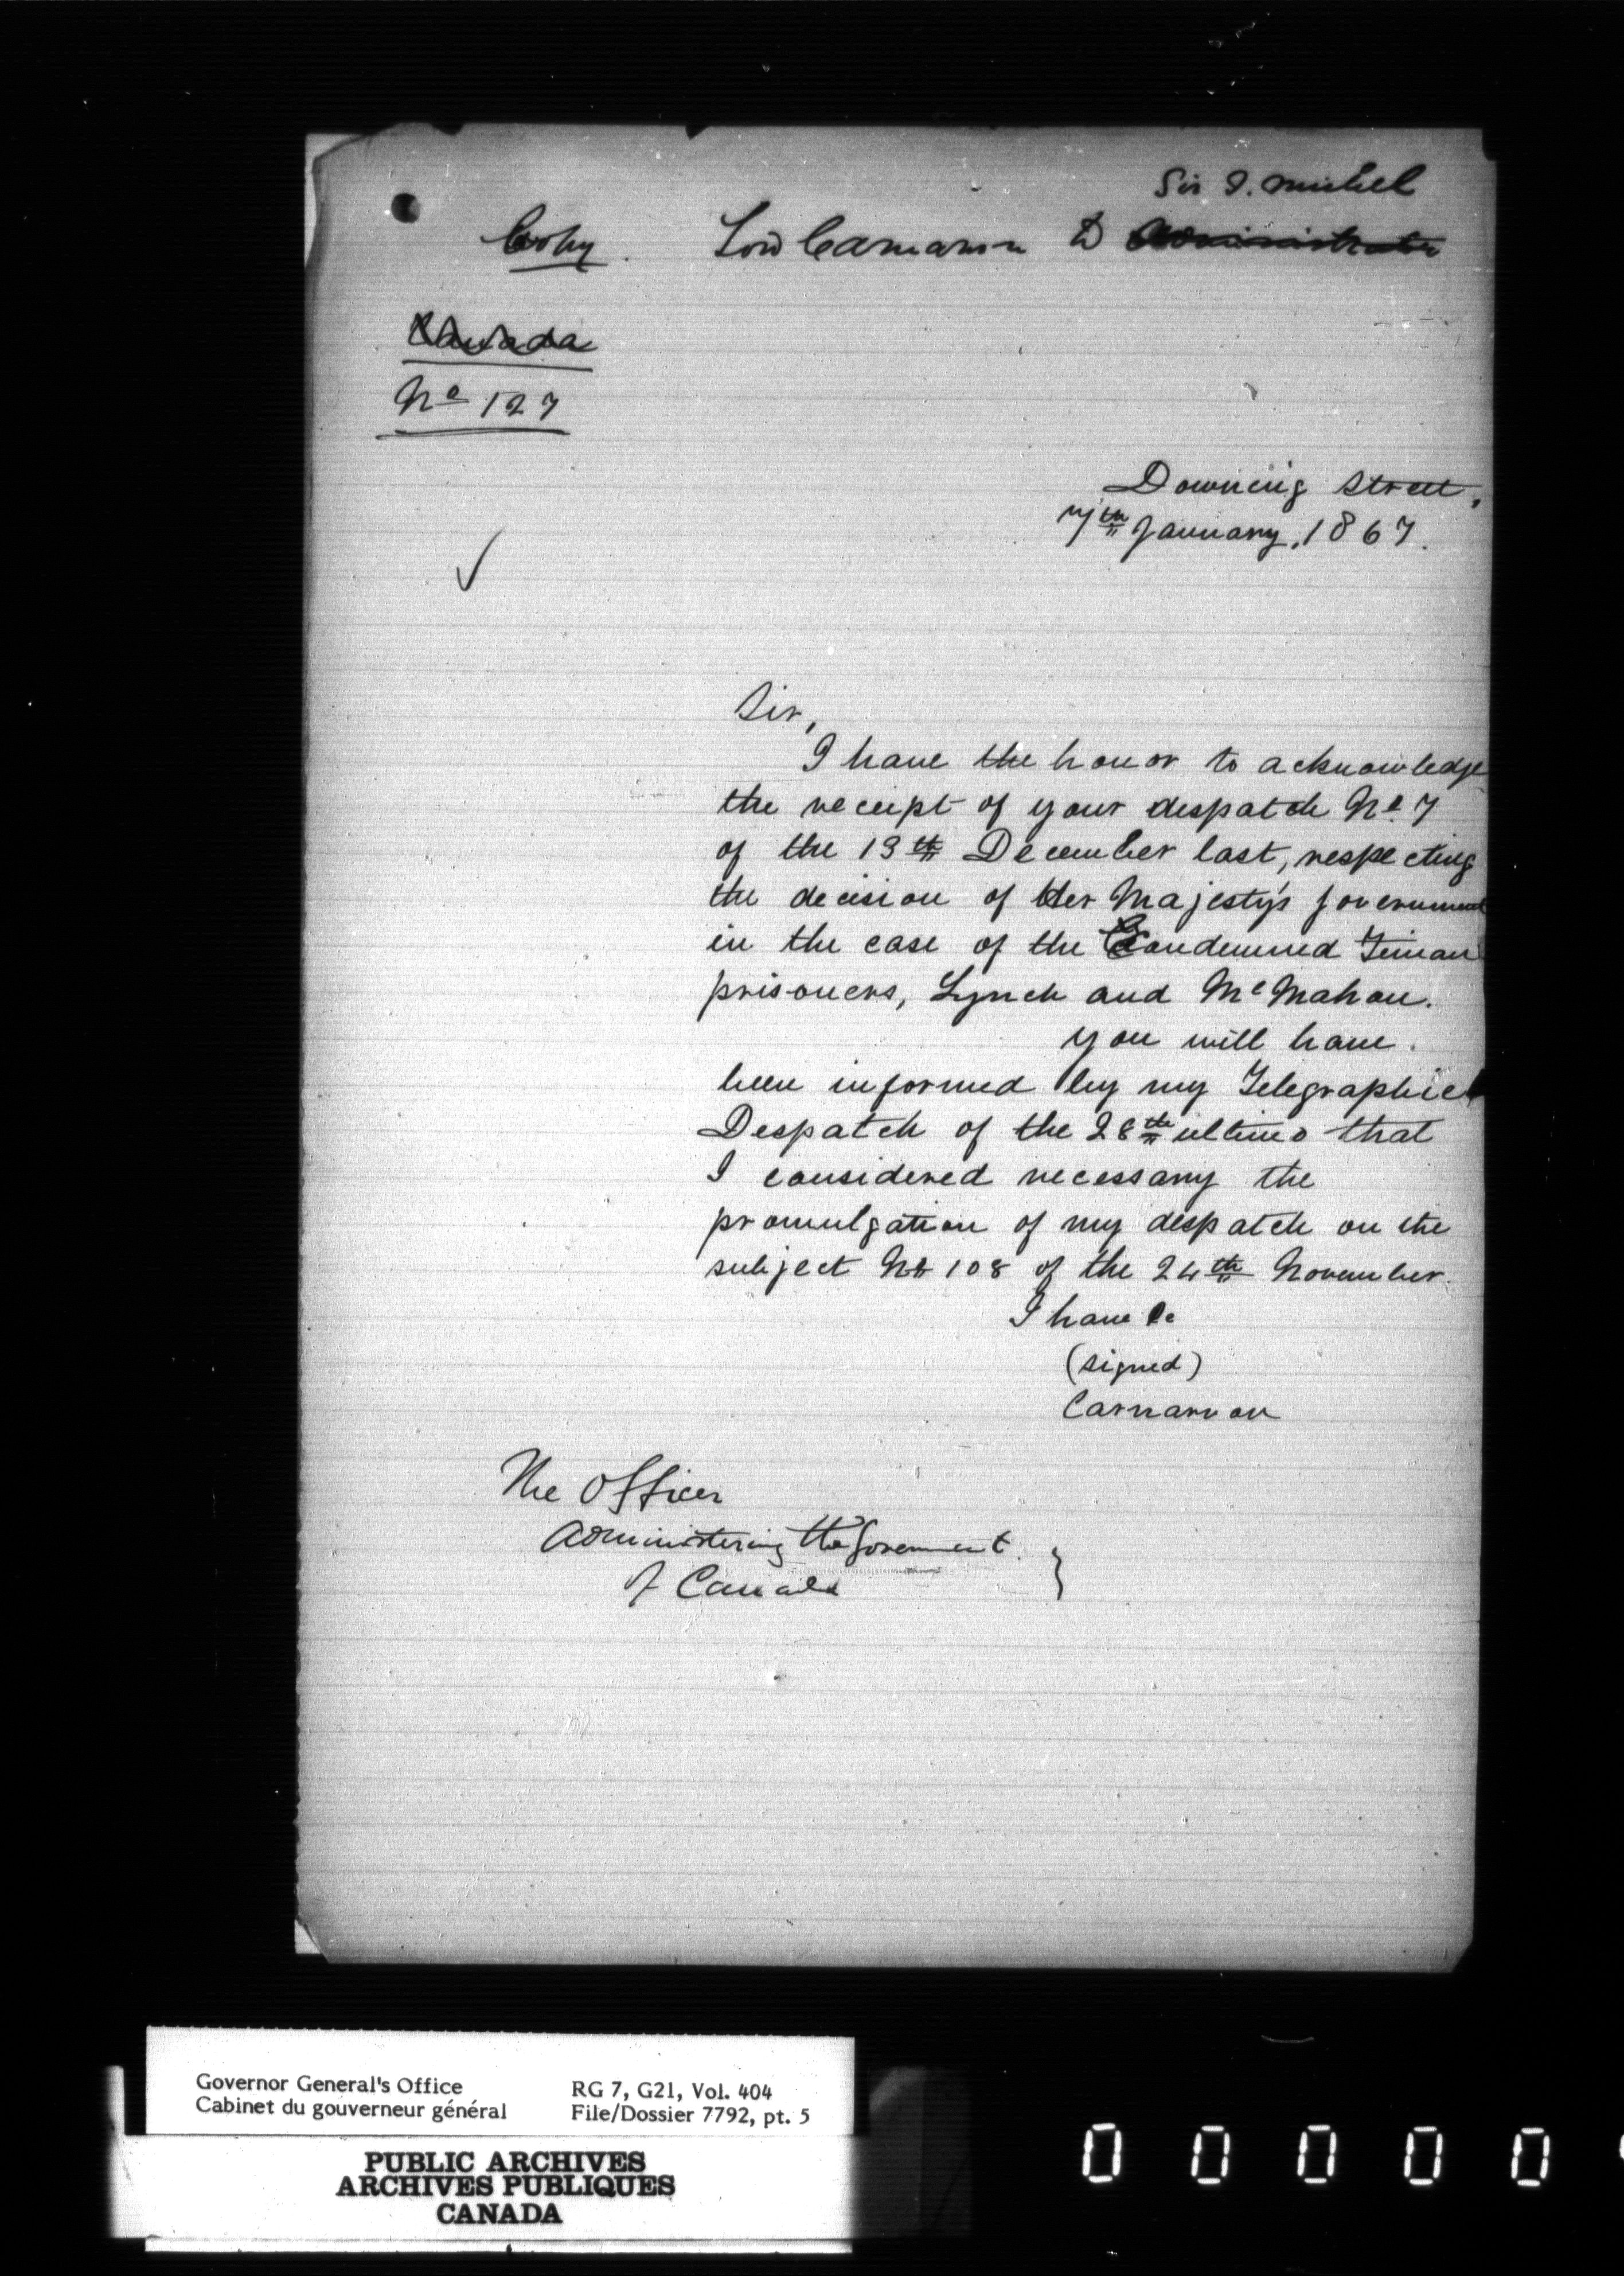 Sir J. Michel
Copy. Lord Carnarvon to Administrator
Canada
No 127
Downing Street,
7th January, 1867.
Sir,
I have the honor to acknowledge
the receipt of your despatch No. 7
of the 13th December last, respecting
the decision of Her Majesty's Government
in the case of the Condemned Fenian
prisoners, Lynch and McMahon.
You will have
been informed by my Telegraphic
Despatch of the 28th ultimo that
I considered necessary the
promulgation of my despatch on the
subject No 108 of the 24th November.
I have &c
(signed)
Carnarvon
The Officer
Administering the Government
of Canada }
Governor General's Office RG 7, G21, Vol. 404
Cabinet du gouverneur général File/Dossier 7792, pt. 5
PUBLIC ARCHIVES
ARCHIVES PUBLIQUES
CANADA
0 0 0 0 0